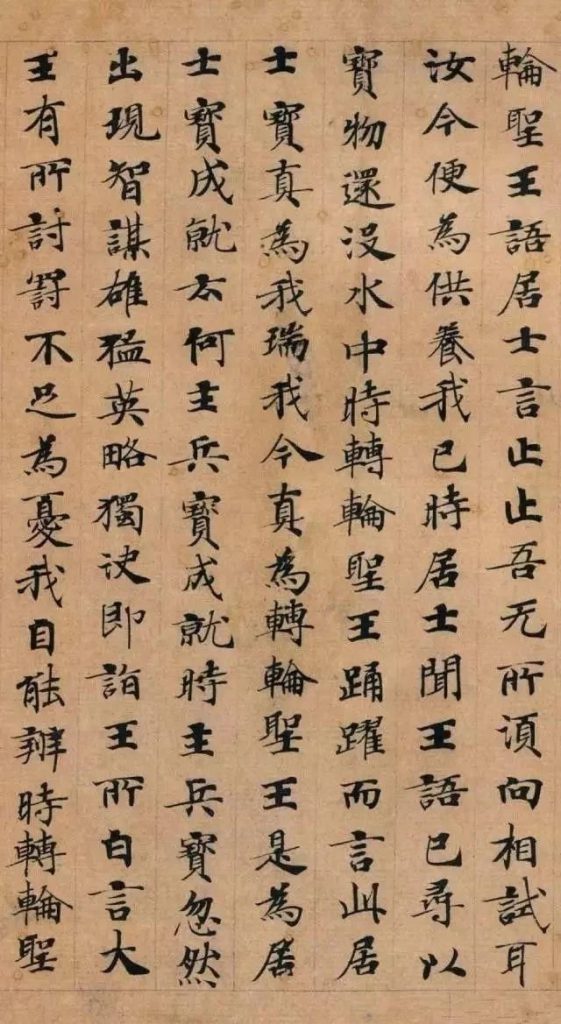 輪聖王語居士言止止吾无所湏向相試耳
汝今便為供養我已時居士聞王語已尋以
寶物還没水中時轉輪聖王踊躍而言此居
士寶真為我瑞我今真為轉輪聖王是為居
士寶成就云何主兵寶成就時主兵寶忽然
出現智謀雄猛英略獨决即詣王所白言大
王有所討罸不足為憂我自能辦時轉輪聖